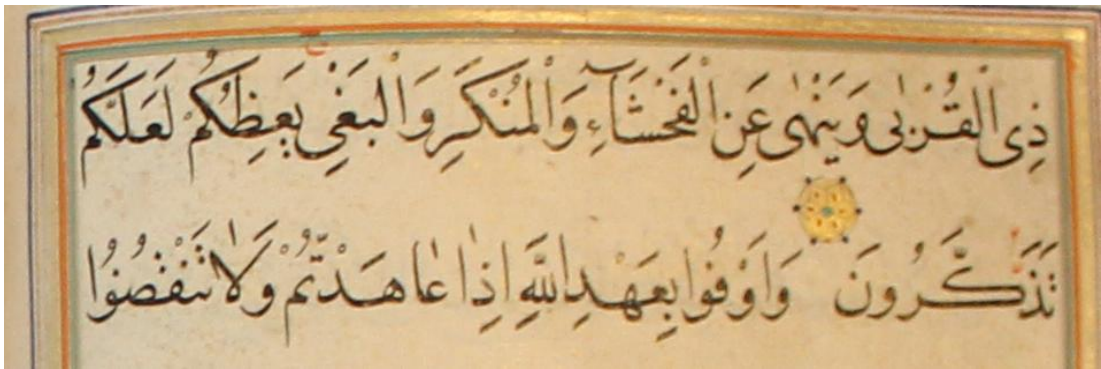 ذِى الْقُرْبٰى وَيَنْهٰى عَنِ الْفَحْشَآءِ وَالْمُنْكَرِ وَالْبَغْىِ يَعِظُكُمْ لَعَلَّكُمْ
تَذَكَّرُونَ وَاَوْفُوا بِعَهْدِ اللّٰهِ اِذَا عَاهَدْتُمْ وَلَا تَنْقُضُوا